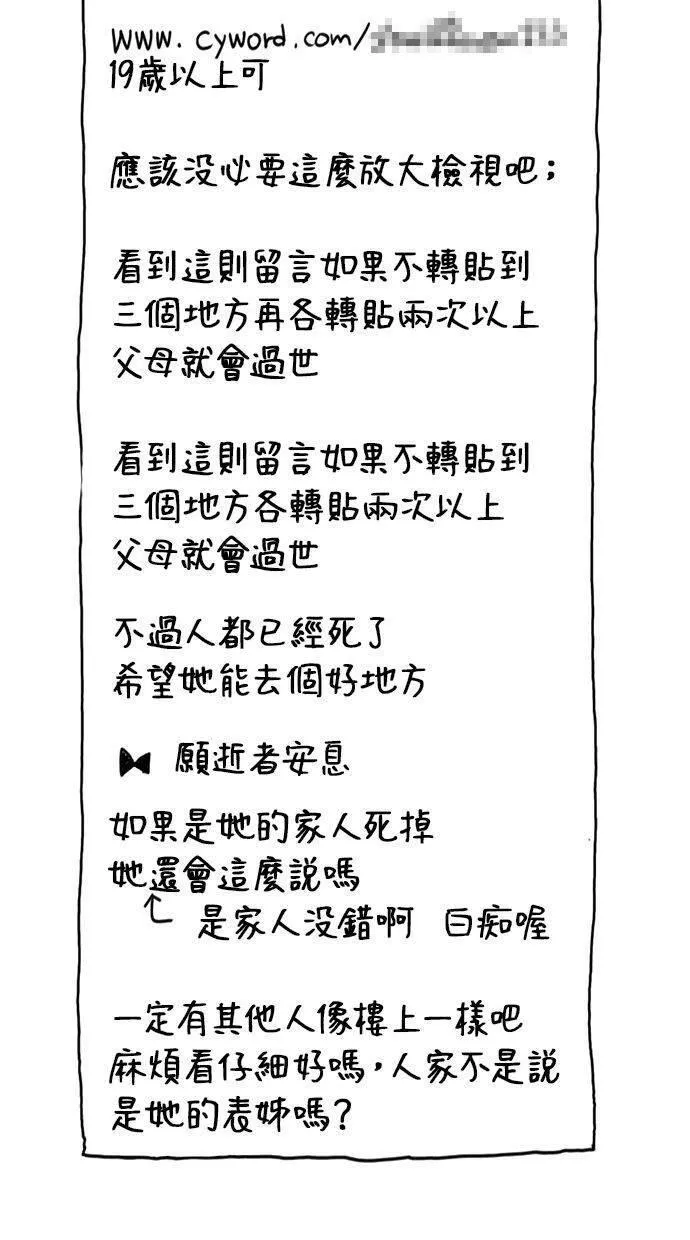 www.cyword.com/
19歲以上可
應該沒必要這麼放大檢視吧；
看到這則留言如果不轉貼到
三個地方再各轉貼兩次以上
父母就會過世
看到這則留言如果不轉貼到
三個地方各轉貼兩次以上
父母就會過世
不過人都已經死了
希望她能去個好地方
願逝者安息
如果是她的家人死掉
她還會這麼說嗎
是家人沒錯啊 白痴喔
一定有其他人像樓上一樣吧
麻煩看仔細好嗎，人家不是說
是她的表姊嗎？